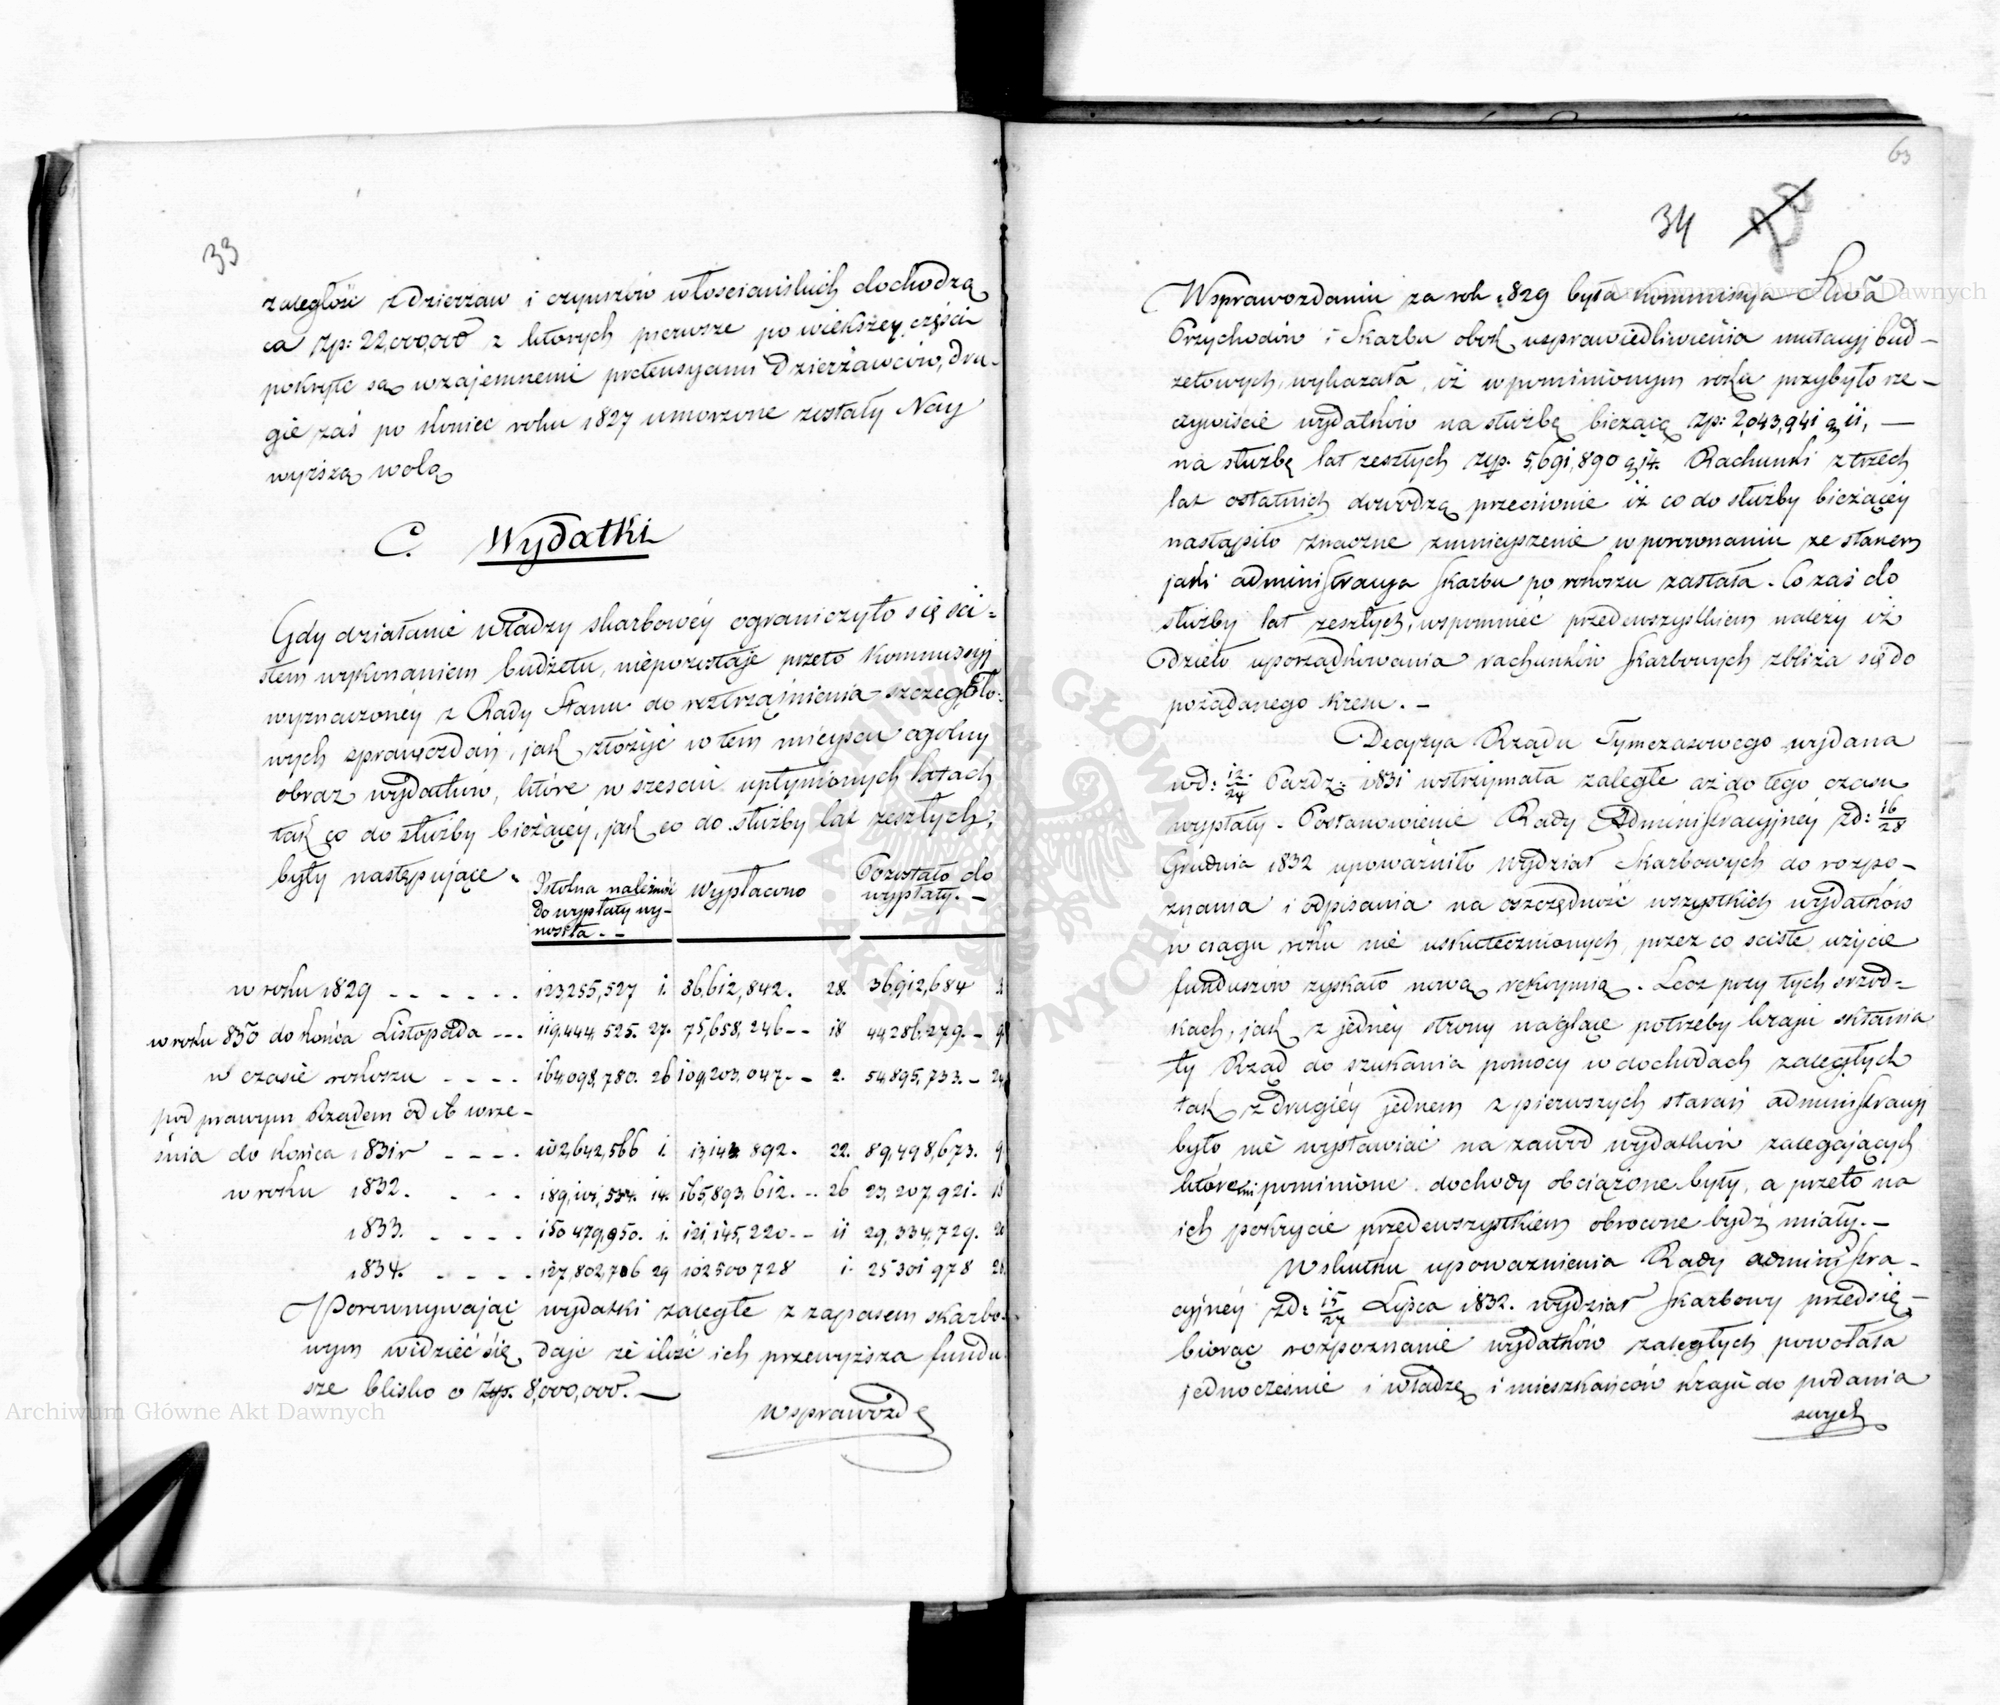 33
zaległość z dzierżaw i czynszów włościańskich dochodzą
ca Zp: 22,000,000 z których pierwsze po większey części
pokryte są wzajemnemi pretensyami Dzierżawców, dru-
gie zaś po koniec roku 1827 umorzone zostały Nay
wyższą wolą
C. Wydatki
Gdy działanie władzy skarbowéy ograniczyło się ści=
słem wykonaniem budżetu, niepozostaje przeto Kommissyj
wyznaczonéy z Rady Stanu do roztrząśnienia szczegóło-
wych sprawozdań, jak złożyć w tem mieyscu ogólny
obraz wydatków, które w sześciu upłynionych latach
tak co do służby bieżącéy, jak co do służby lat zeszłych,
były następujące.
Istotna należność do wypłaty wy-
nosiła - -
Wypłacono
Pozostało do
wypłaty. -
w roku 1829 - - - - - - 123,255,527 1. 86,612,842. 28. 36,912,684 3
w roku 830 do końca Listopada - - - 119,444,525. 27. 75,658,246 - - 18 44,286,279. - 9
w czasie rokoszu - - - - 164,098,780. 26 109,203,047. - - 2. 54,895,733. - 24
pod prawym Rządem od 16 wrze-
śnia do końca 1831 r - - - - 102,642,566 1. 13,143 892. 22. 89,498,673. 9
w roku 1832. - - - 189,101,534. 14. 165,893,612. - - 26 23,207,921. 18
1833. - - - - 150 479,950. 1. 121,145,220. - - 11 29,334,729. 20
1834. - - - - 127,802,706 29 102 500 728 1. 25 301 978 28.
Porównywając wydatki zaległe z zapasem skarbo-
wym widzieć się daje że ilość ich przewyższa fundu
sze blisko o Zyp. 8,000,000. —
W sprawozda
63
34
W sprawozdaniu za rok 1829 była Kommissya
Przychodów i Skarbu obok usprawiedliwienia mutacyj bud-
żetowych, wykazała, iż w pominionym roku przybyło rze-
czywiście wydatków na służbę bieżącą Zp: 2,043,941 g 11, —
na służbę lat zeszłych Zyp. 5,691,890 g 14. Rachunki z trzech
lat ostatnich dowodzą przeciwnie iż co do służby bieżącéy
nastąpiło znaczne zmnieyszenie w porównaniu ze stanem
jaki administracya Skarbu po rokoszu zastała. Co zaś do
służby lat zeszłych, wspomnieć przedewszystkiem należy iż
Dzieło uporządkowania rachunków Skarbowych zbliża się do
pożądanego kresu. -
Decyzya Rządu Tymczasowego wydana
wd: 12/24 Paźdz: 1831 wstrzymała zaległe aż do tego czasu
wypłaty. Postanowienie Rady Administracyjnéy zd: 16/28
Grudnia 1832 upoważniło Wydział Skarbowych do rozpo-
znania i odpisania na oszczędność wszystkich wydatków
w ciągu roku nie uskutecznionych, przez co ścisłe użycie
funduszów zyskało nową rękoymią. Lecz przy tych środ=
kach, jak z jednéy strony naglące potrzeby kraju skłania
ły Rząd do szukania pomocy w dochodach zaległych
tak z drugiéy jednem z pierwszych starań administracyj
było nie wystawiać na zawód wydatków zalegających
któremi pominione dochody obciążone były, a przeto na
ich pokrycie przedewszystkiem obrócone bydź miały. -
W skutku upoważnienia Rady administra-
cyjnéy zd: 15/27 Lipca 1832. wydział Skarbowy przedsię-
biorąc rozpoznanie wydatków zaległych powołała
jednocześnie i władzę i mieszkańców kraju do podania
swych
Archiwum Główne Akt Dawnych